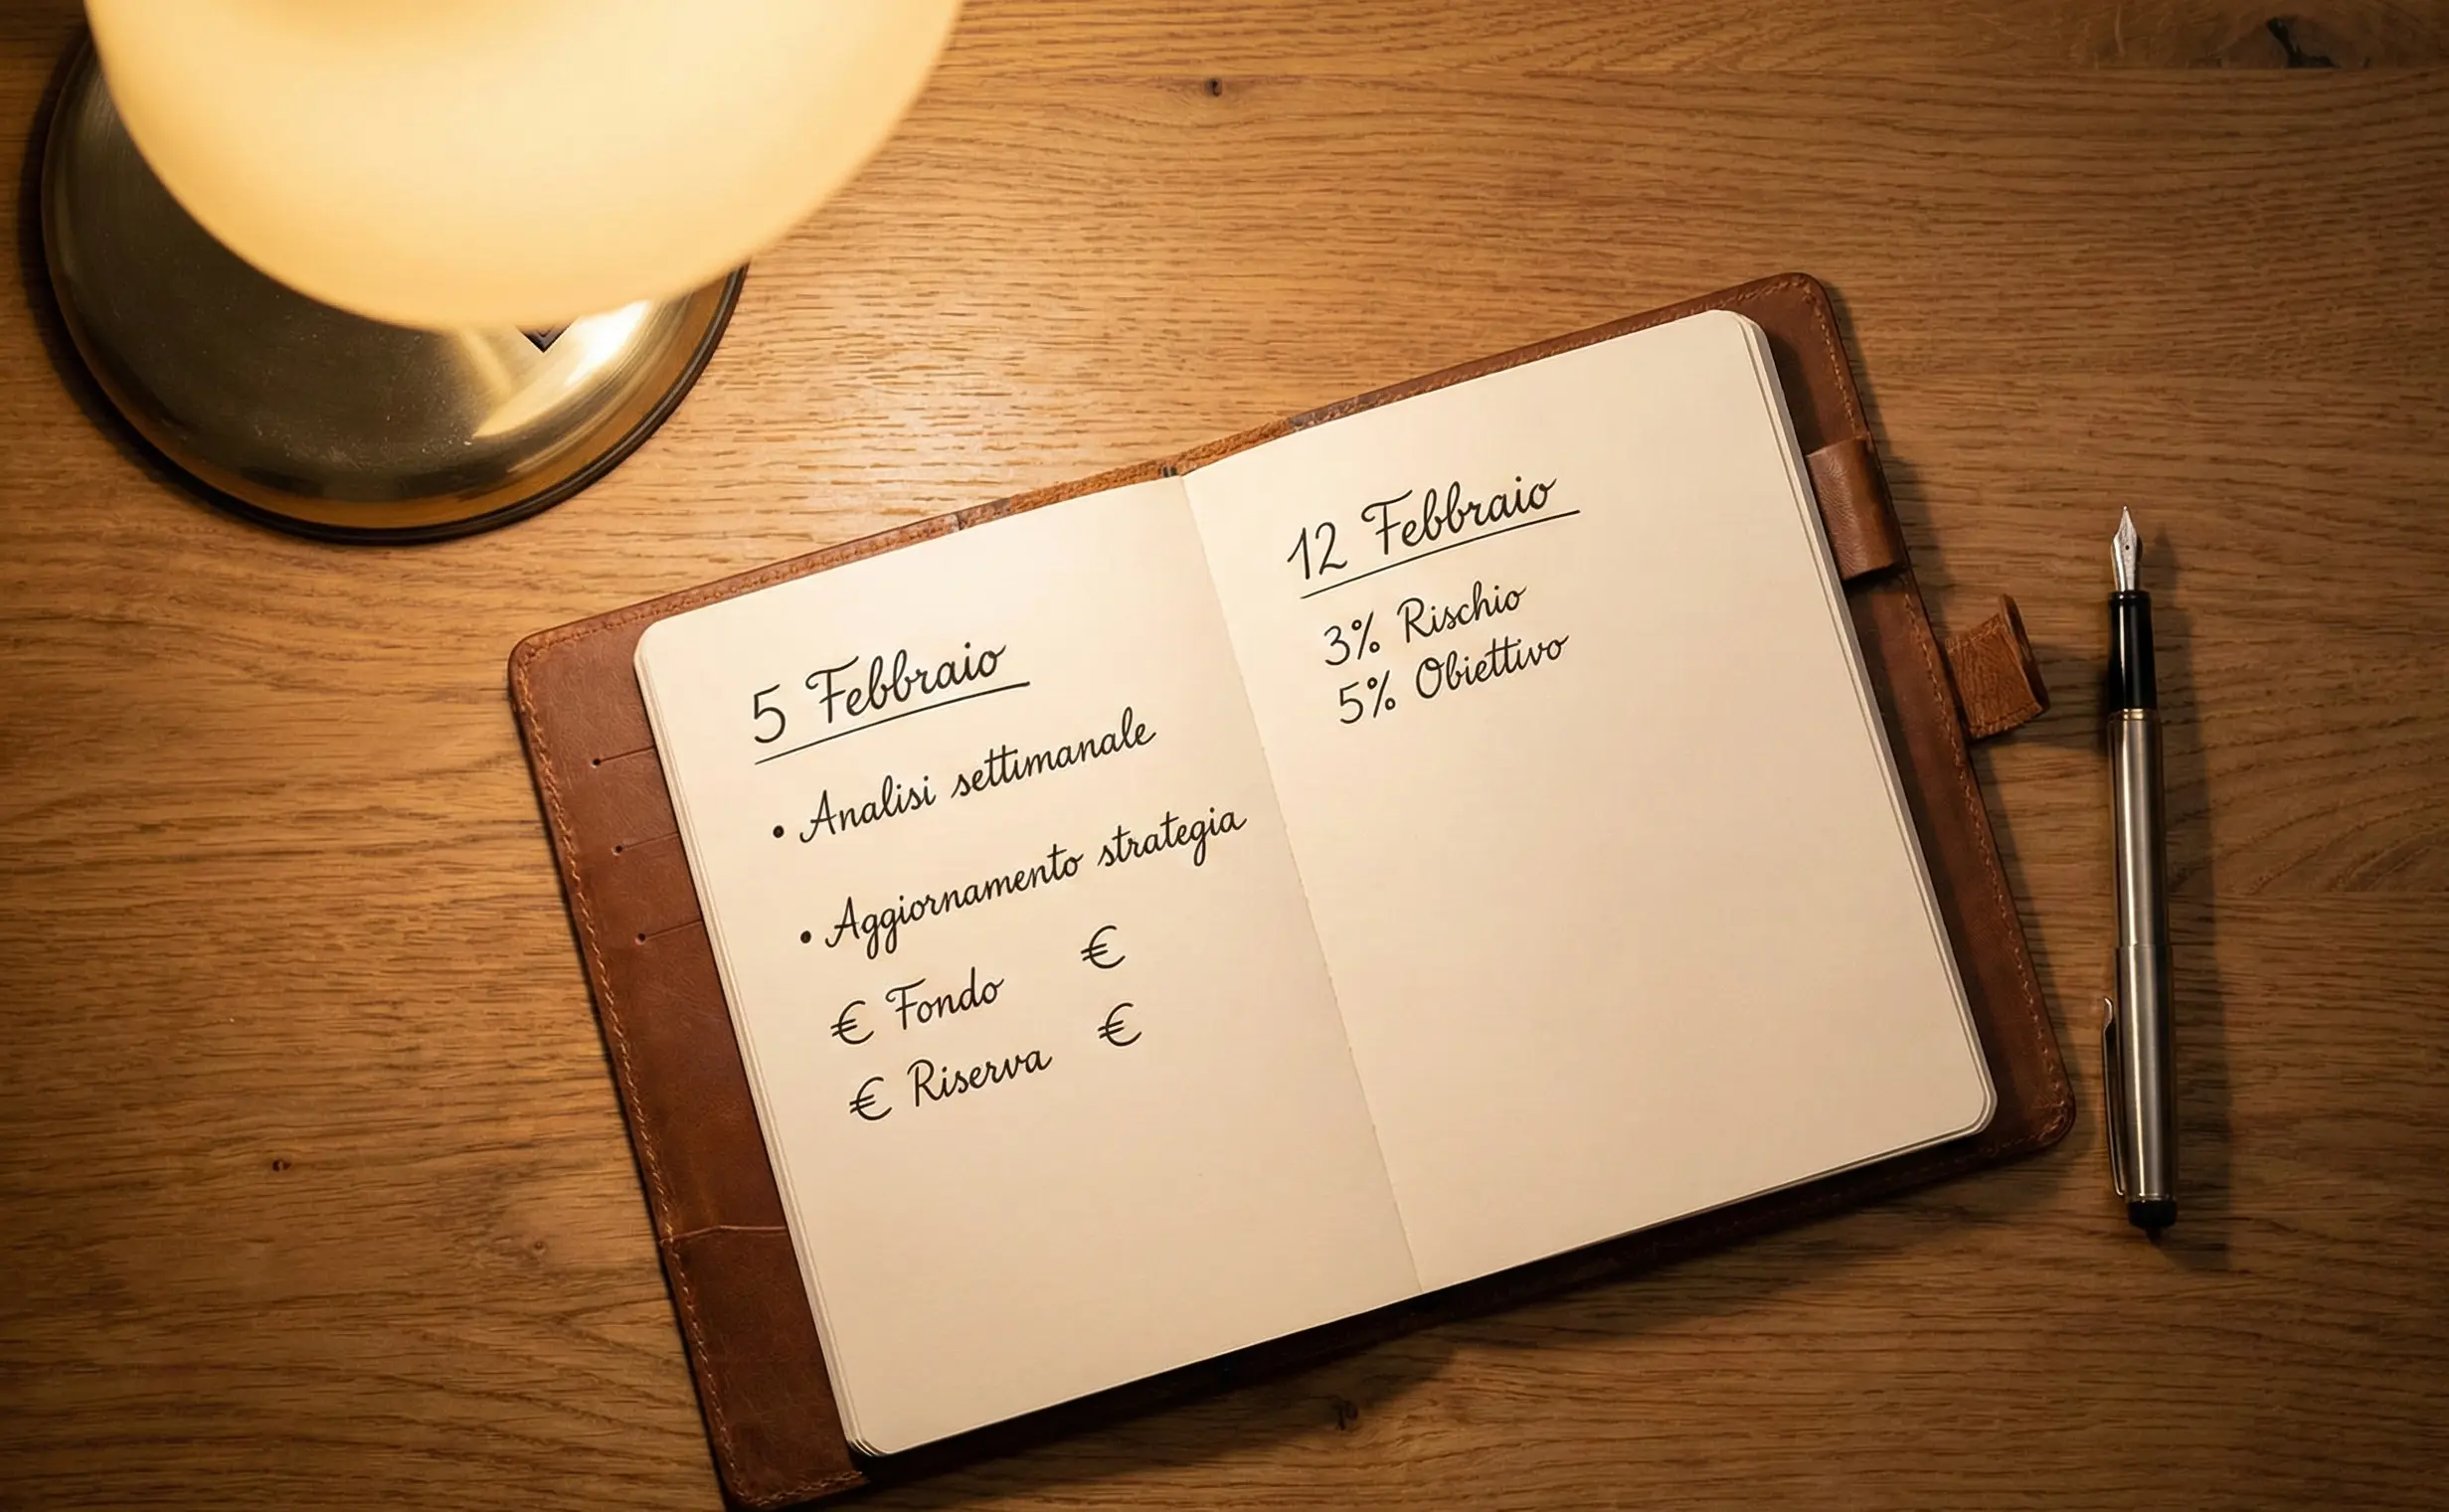 5 Febbraio
• Analisi settimanale
• Aggiornamento strategia
€ Fondo €
€ Riserva €
12 Febbraio
3% Rischio
5% Obiettivo